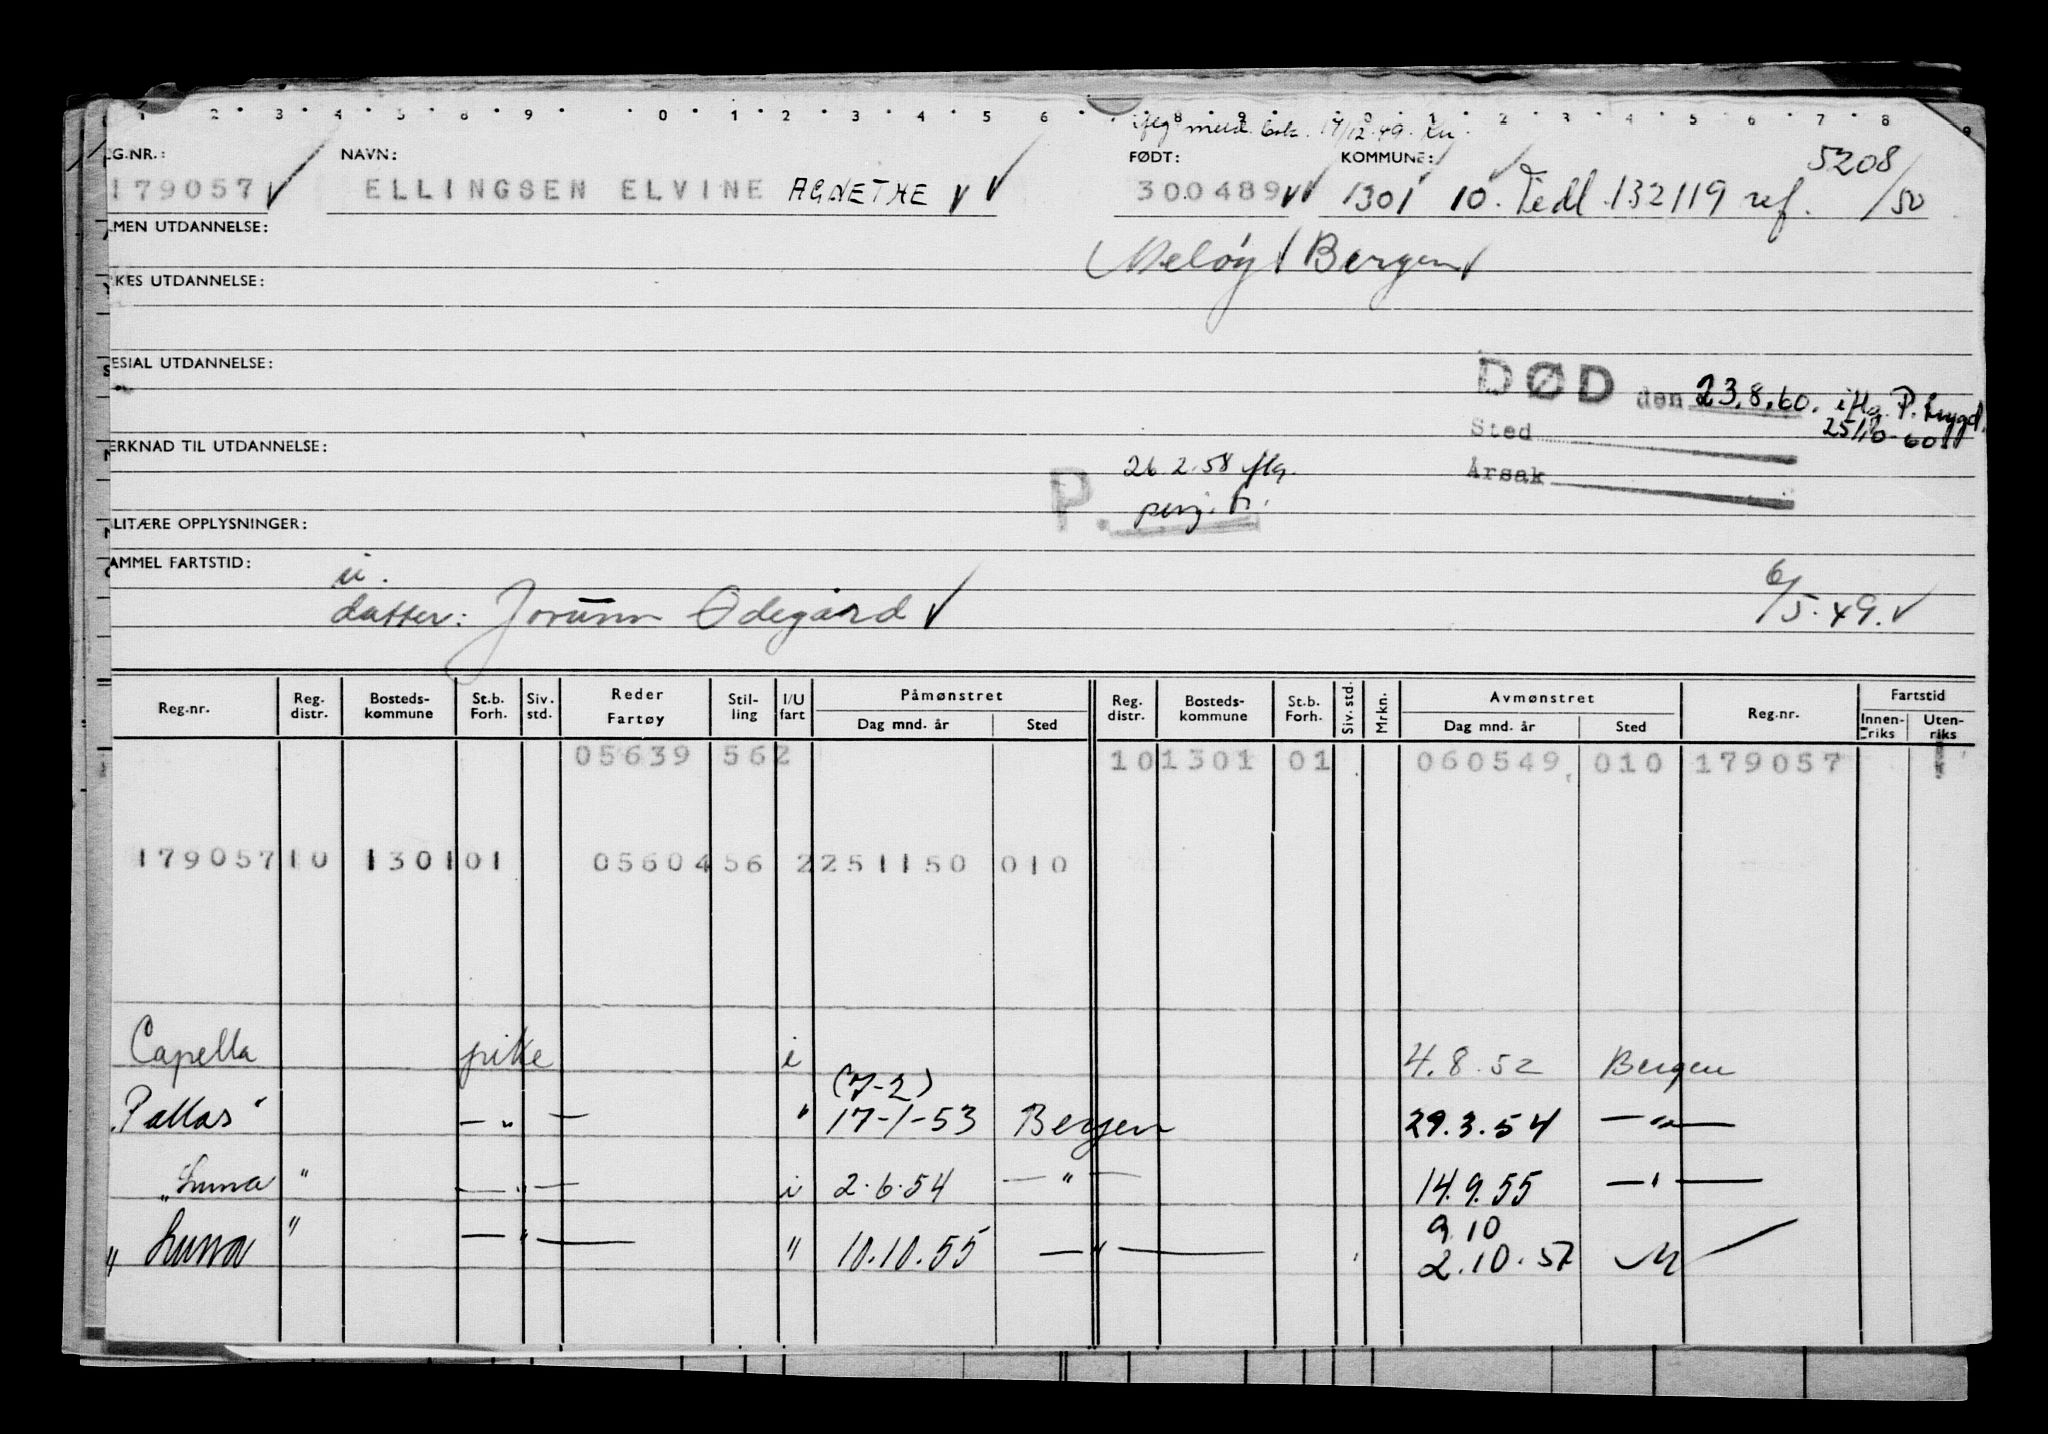 1 2 3 4 5 6 8 9 0 1 2 3 4 5 6 8 9 0 1 2 3 4 5 6 7 8 9
iflg meld. 17/12.49.
G.NR.: NAVN: FØDT: KOMMUNE: 5208/50
179057 ELLINGSEN ELVINE AGNETHE 300489 1301 10. Tedl. 132119 ref.
MEN UTDANNELSE: Meløy Bergen
KES UTDANNELSE:
ESIAL UTDANNELSE:
DØD den 23.8.60. iflg. P. trygd.
25/10-60
Sted
ERKNAD TIL UTDANNELSE:
Årsak
P. 26.2.58 iflg.
penj. tr.
LITÆRE OPPLYSNINGER:
AMMEL FARTSTID: u.
datter: Jorunn Ødegård 6/5.49.
Reg.nr. Reg. distr. Bosteds- kommune St.b. Forh. Siv. std. Reder Fartøy Stil- ling I/U fart Påmønstret Reg. distr. Bosteds- kommune St.b. Forh. Siv. std. Mrkn. Avmønstret Reg.nr. Fartstid
Dag mnd. år Sted Dag mnd. år Sted Innen- riks Uten- riks
05639 562 101301 01 060549 010 179057
17905710 130101 0560456 2251150 010
Capella pike i 4.8.52 Bergen
(7-2)
"Pallas" — " — " 17-1-53 Bergen 29.3.54 — " —
"Luna" — " — i 2.6.54 — " — 14.9.55 — " —
9.10
"Luna" — " — " 10.10.55 — " — 2.10.57